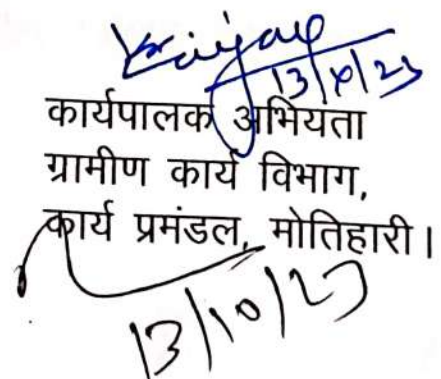 13/10/23
कार्यपालक अभियता
ग्रामीण कार्य विभाग,
कार्य प्रमंडल, मोतिहारी।
13/10/23